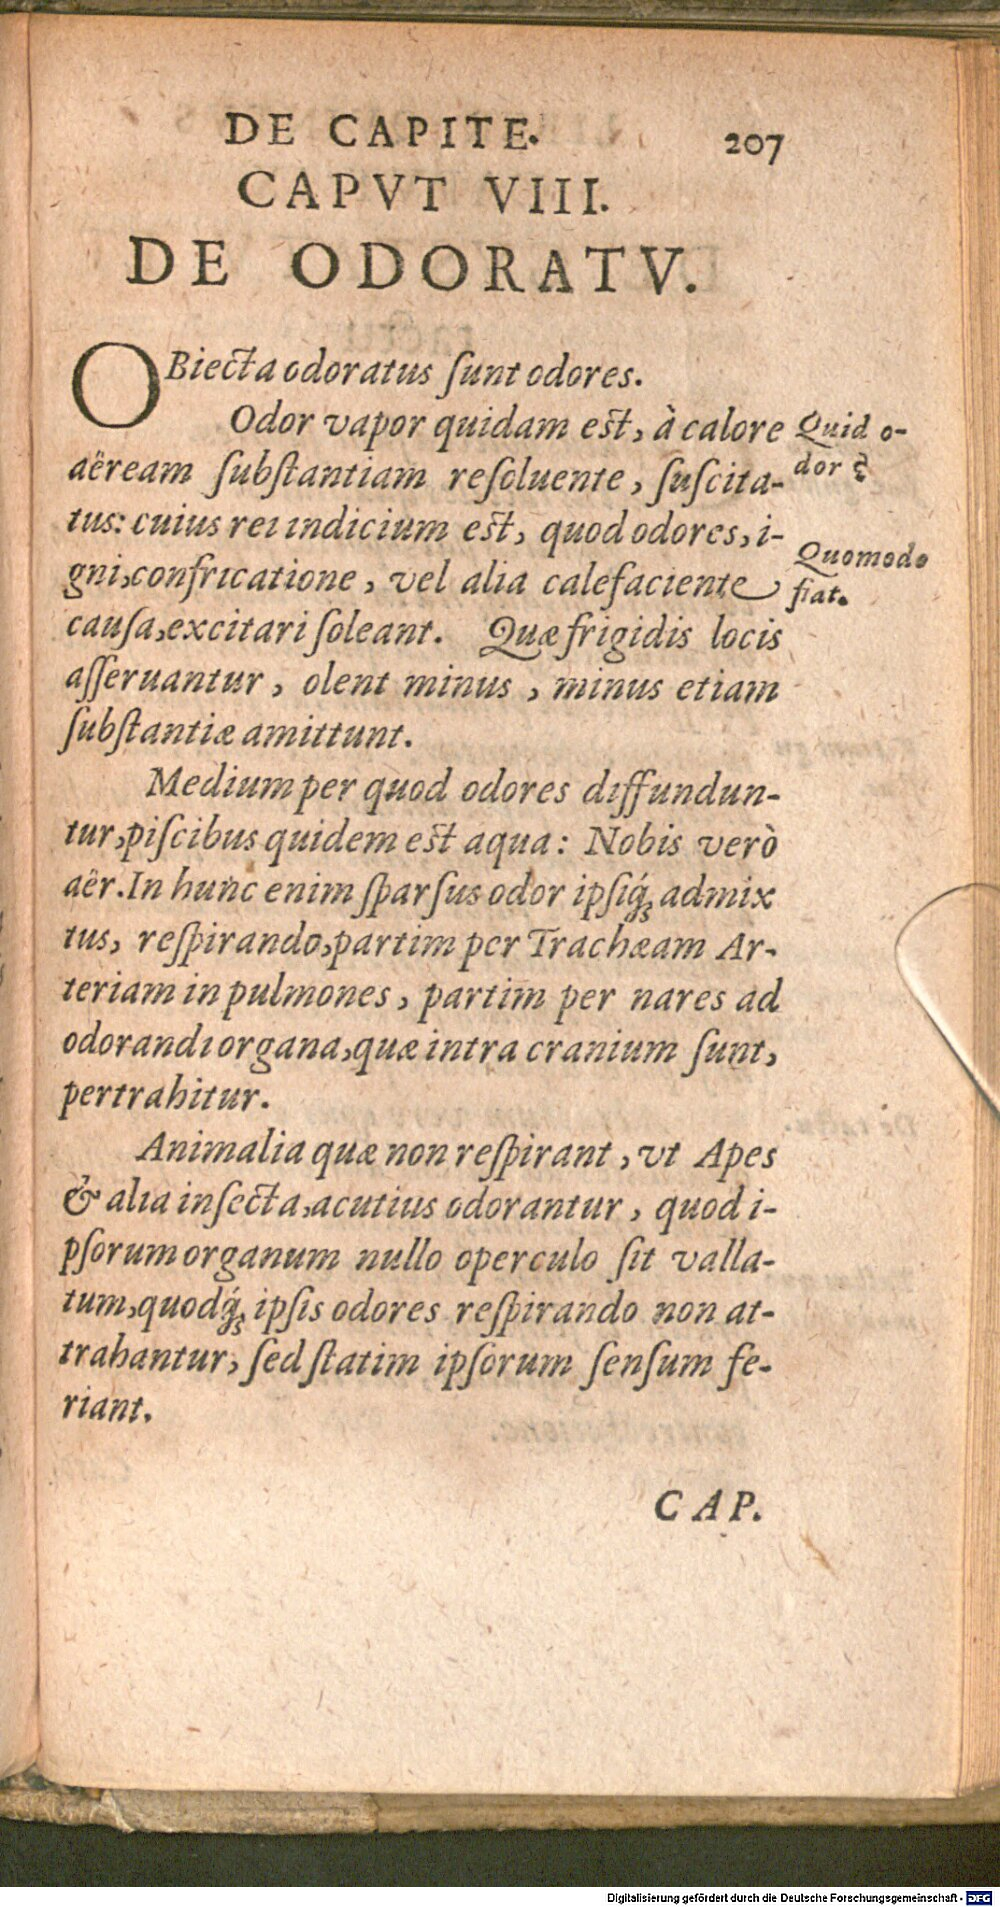 DE CAPITE. 207
CAPVT VIII.
DE ODORATV.
OBiecta odoratus sunt odores.
Odor vapor quidam est, à calore
aëream substantiam resoluente, suscita-
tus: cuius rei indicium est, quod odores, i-
gni, confricatione, vel alia calefaciente
causa, excitari soleant. Quæ frigidis locis
asseruantur, olent minus, minus etiam
substantiæ amittunt.
Quid o-
dor ?
Quomodo
fiat.
Medium per quod odores diffundun-
tur, piscibus quidem est aqua: Nobis verò
aër. In hunc enim sparsus odor ipsiq́; admix
tus, respirando, partim per Trachæam Ar-
teriam in pulmones, partim per nares ad
odorandi organa, quæ intra cranium sunt,
pertrahitur.
Animalia quæ non respirant, vt Apes
& alia insecta, acutius odorantur, quod i-
psorum organum nullo operculo sit valla-
tum, quodq́; ipsis odores respirando non at-
trahantur, sed statim ipsorum sensum fe-
riant.
CAP.
Digitalisierung gefördert durch die Deutsche Forschungsgemeinschaft - DFG